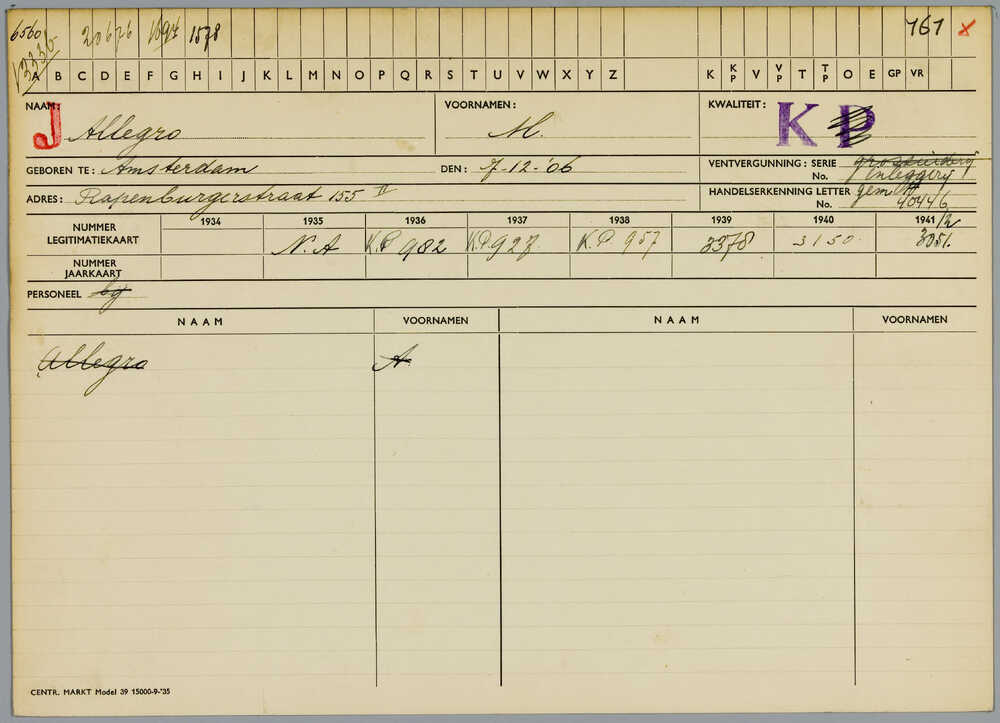 6560 20676 1578 767 x
A B C D E F G H I J K L M N O P Q R S T U V W X Y Z K KP V VP T TP O E GP VR
NAAM: J Allegro VOORNAMEN: M. KWALITEIT: K P
GEBOREN TE: Amsterdam DEN: 7-12-'06 VENTVERGUNNING: SERIE
No. inleggerij
ADRES: Rapenburgerstraat 155 II HANDELSERKENNING LETTER gem
No. 40446
NUMMER LEGITIMATIEKAART 1934 1935 1936 1937 1938 1939 1940 1941/2
N.A K.P. 982 K.P. 927 K.P. 957 3378 3150 3051.
NUMMER JAARKAART
PERSONEEL bij
NAAM VOORNAMEN NAAM VOORNAMEN
Allegro A
CENTR. MARKT Model 39 15000-9-'35